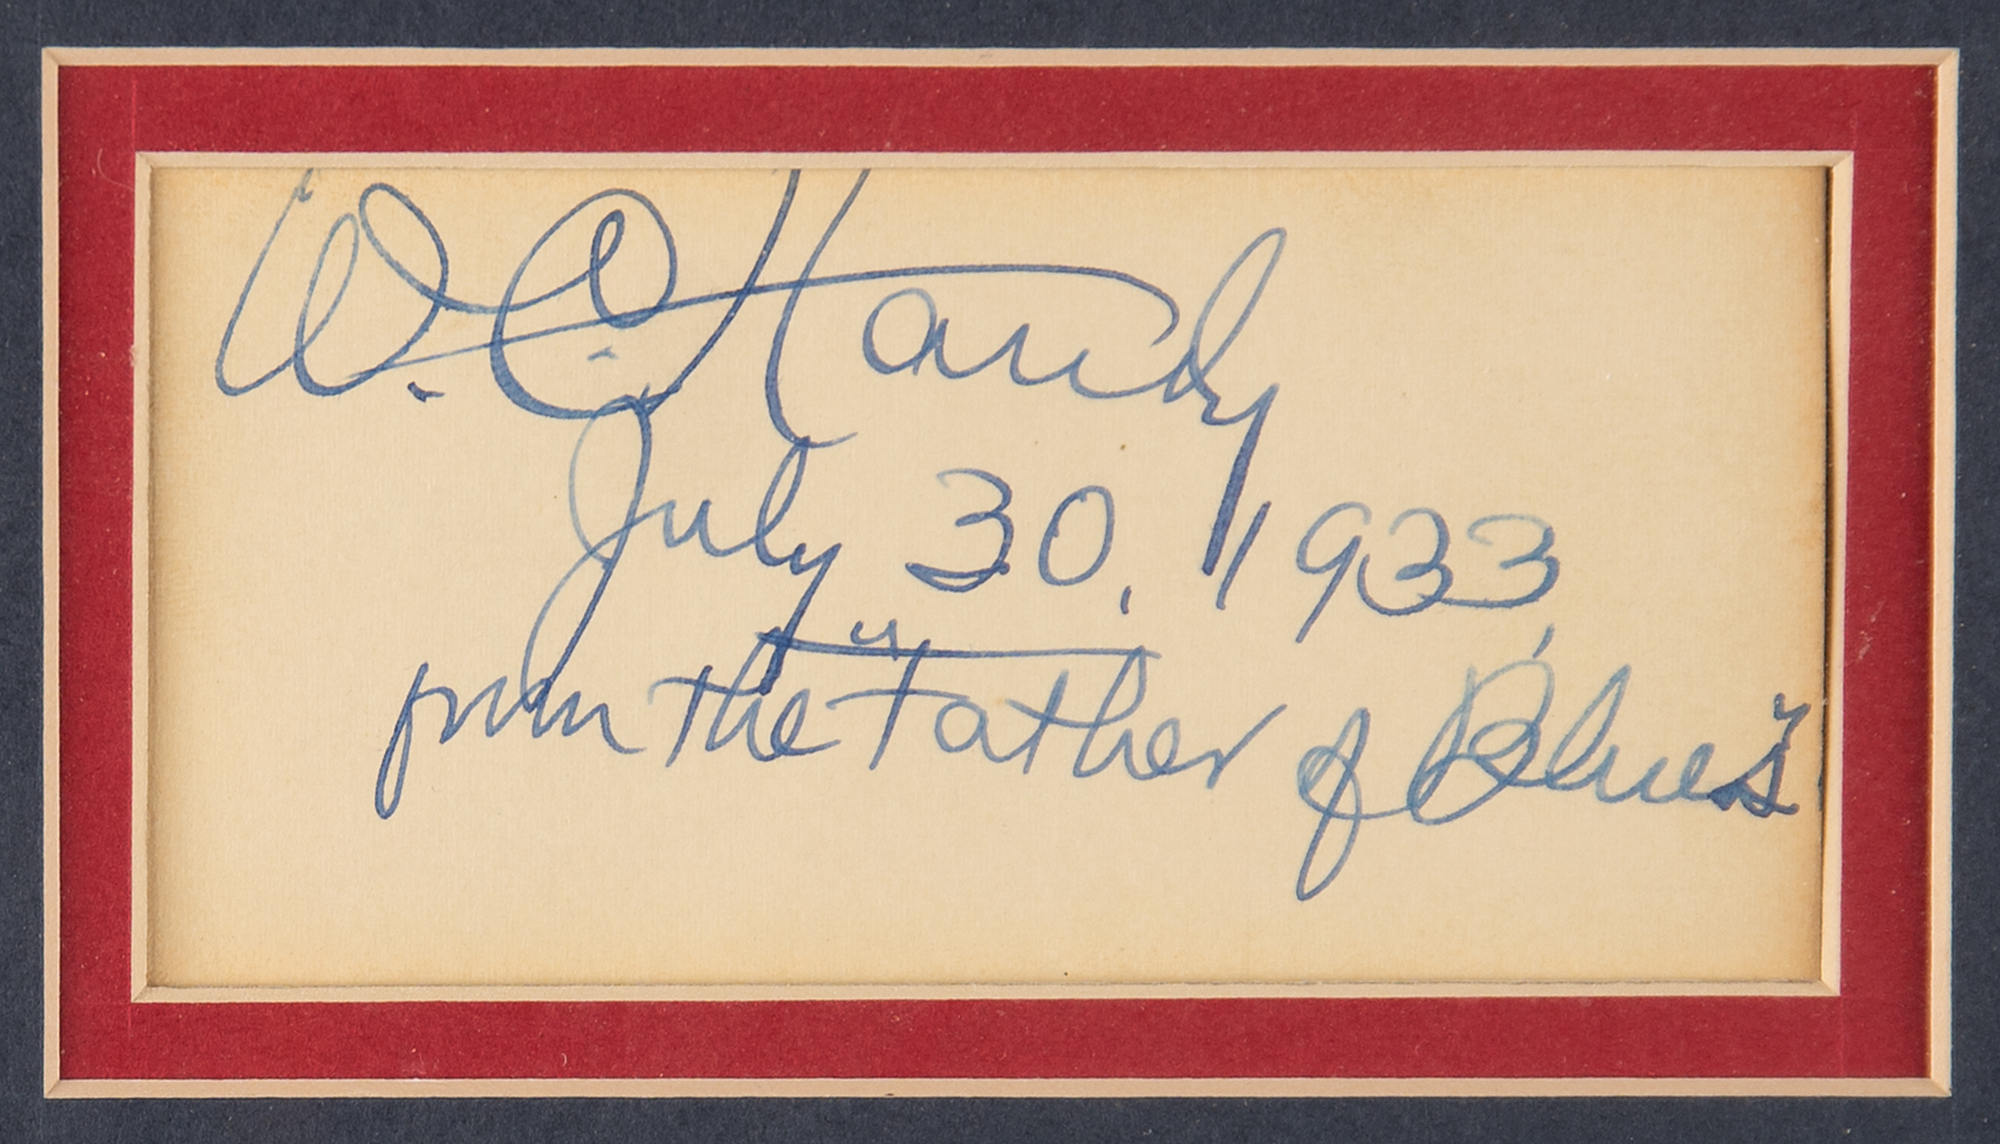 W. C. Handy
July 30, 1933,
from the "Father of Blues"